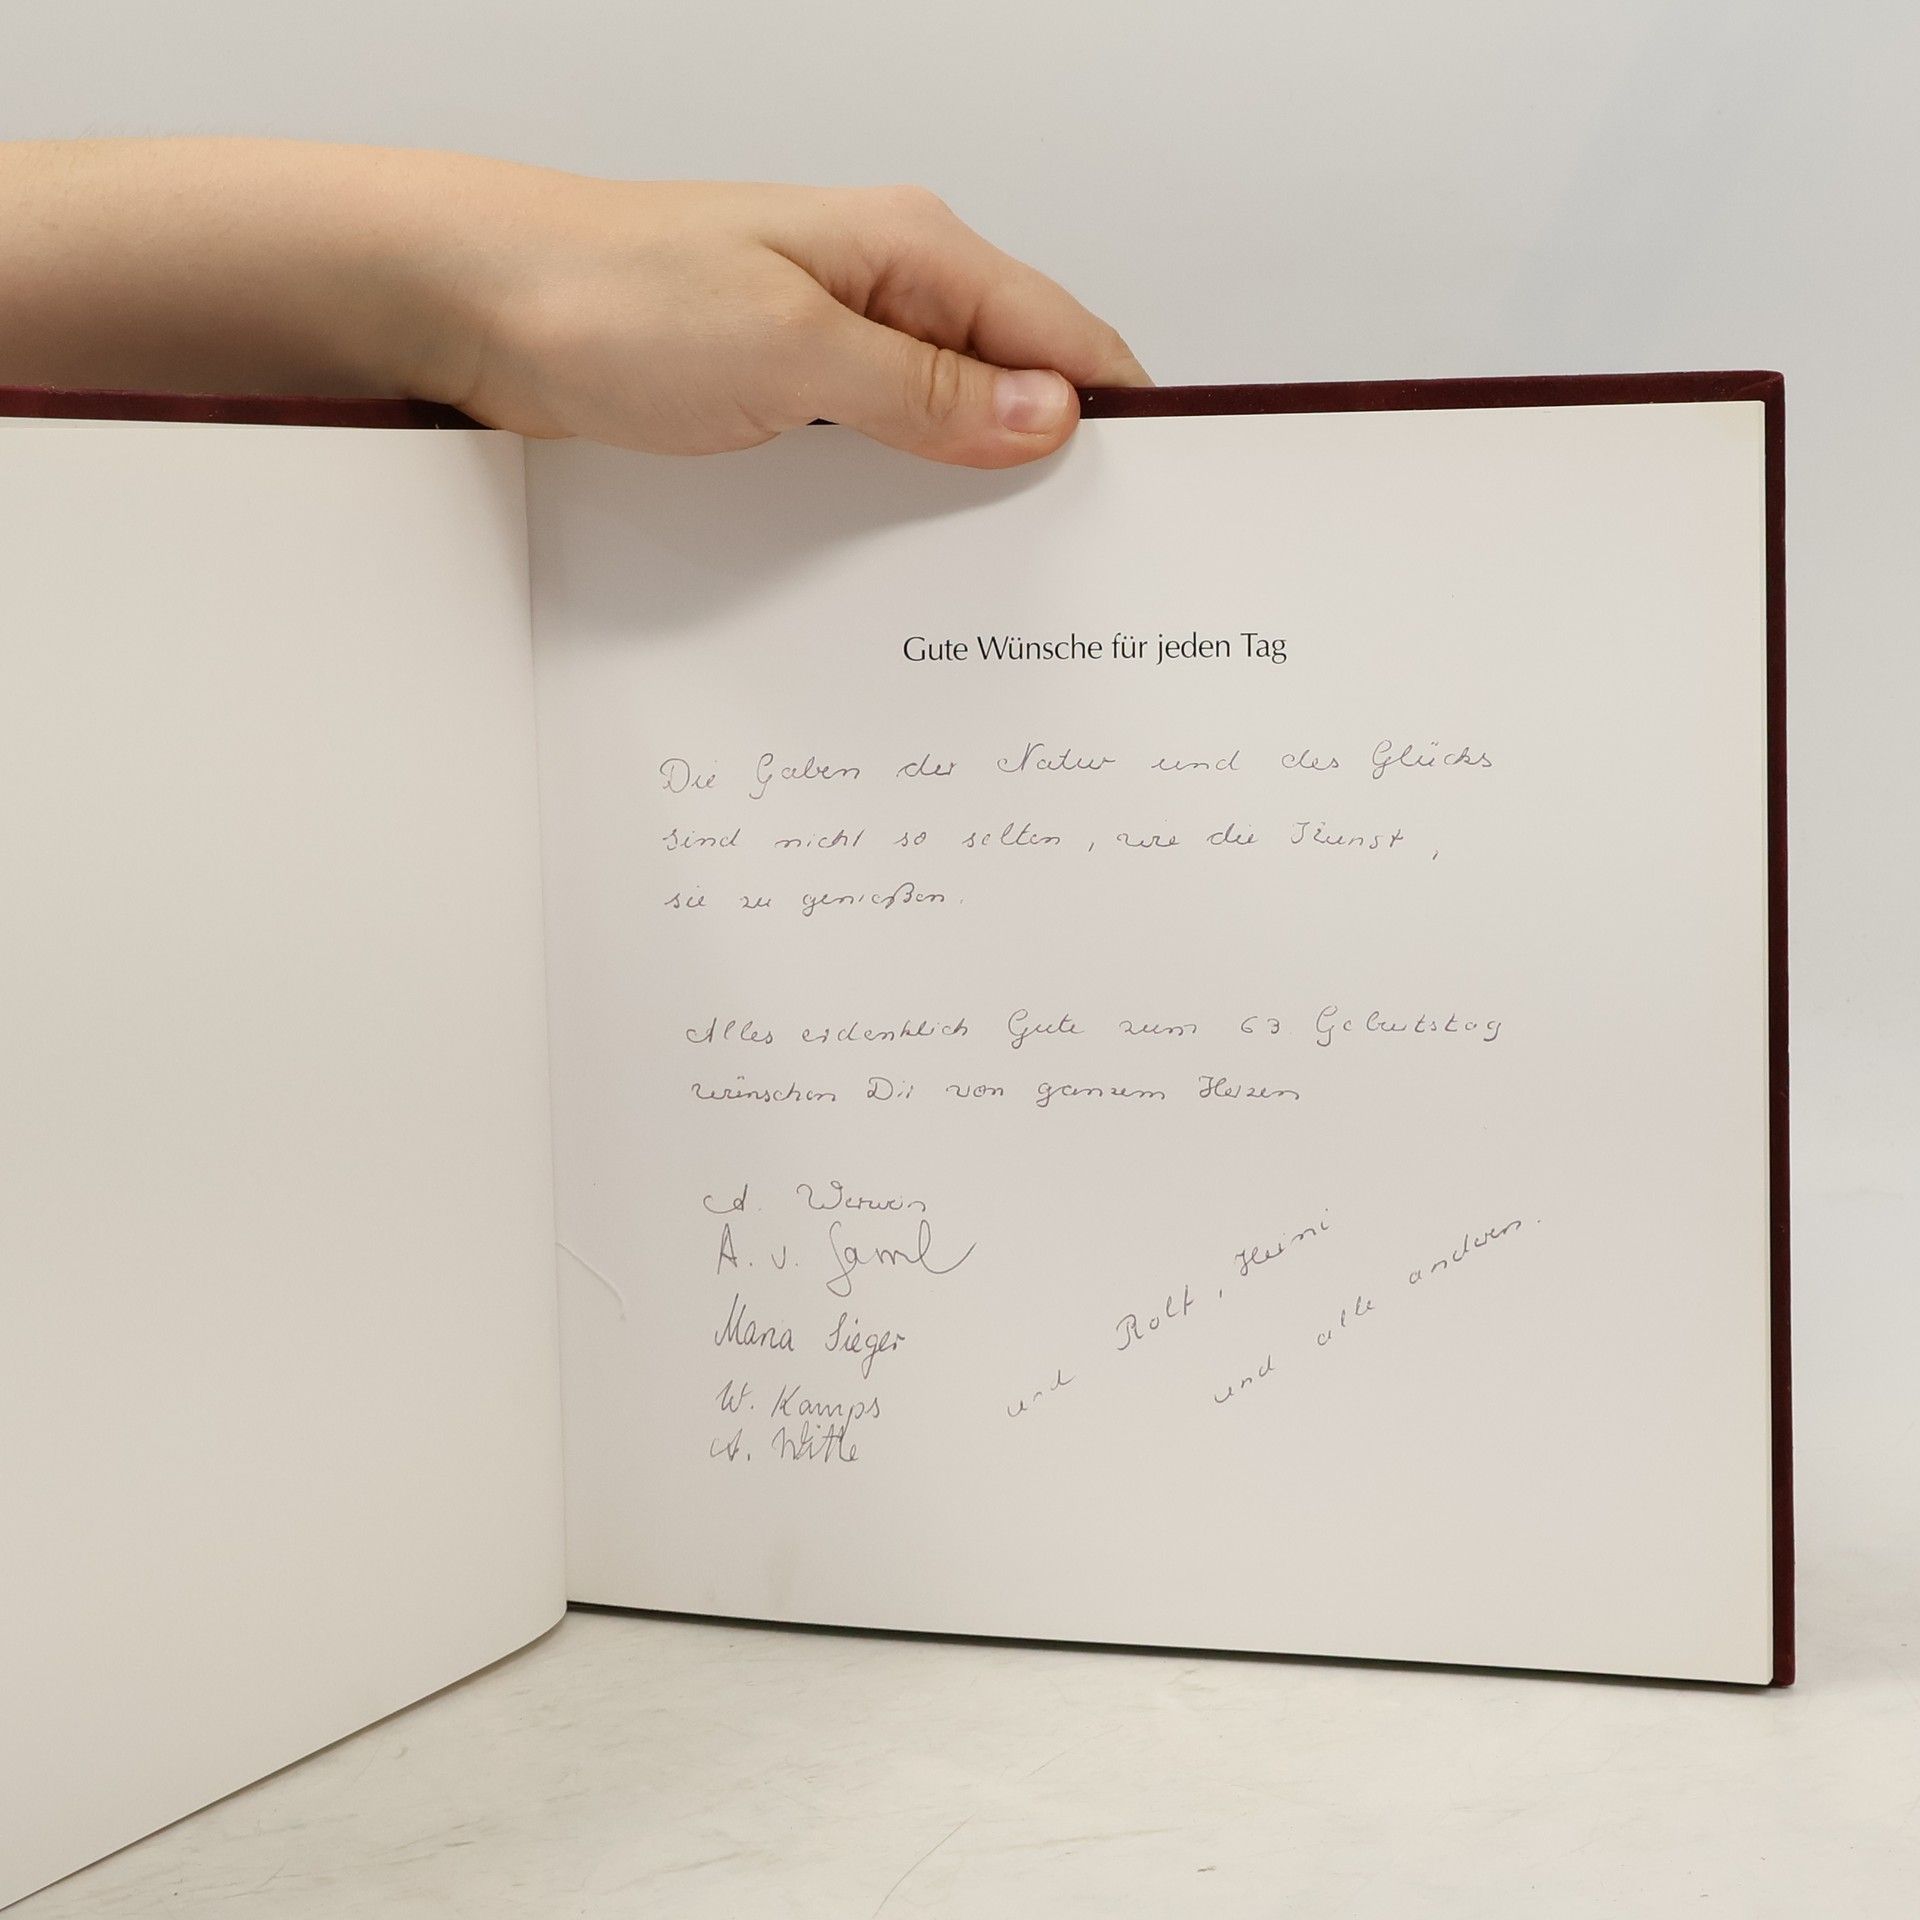 Gute Wünsche für jeden Tag
Die Gaben der Natur und des Glücks
sind nicht so selten, wie die Kunst,
sie zu genießen.
Alles erdenklich Gute zum 63. Geburtstag
wünschen Dir von ganzem Herzen
A.
A. v.
Maria Sieger
W. Kamps
A. Witte
und Rolf, Heini
und alle anderen.